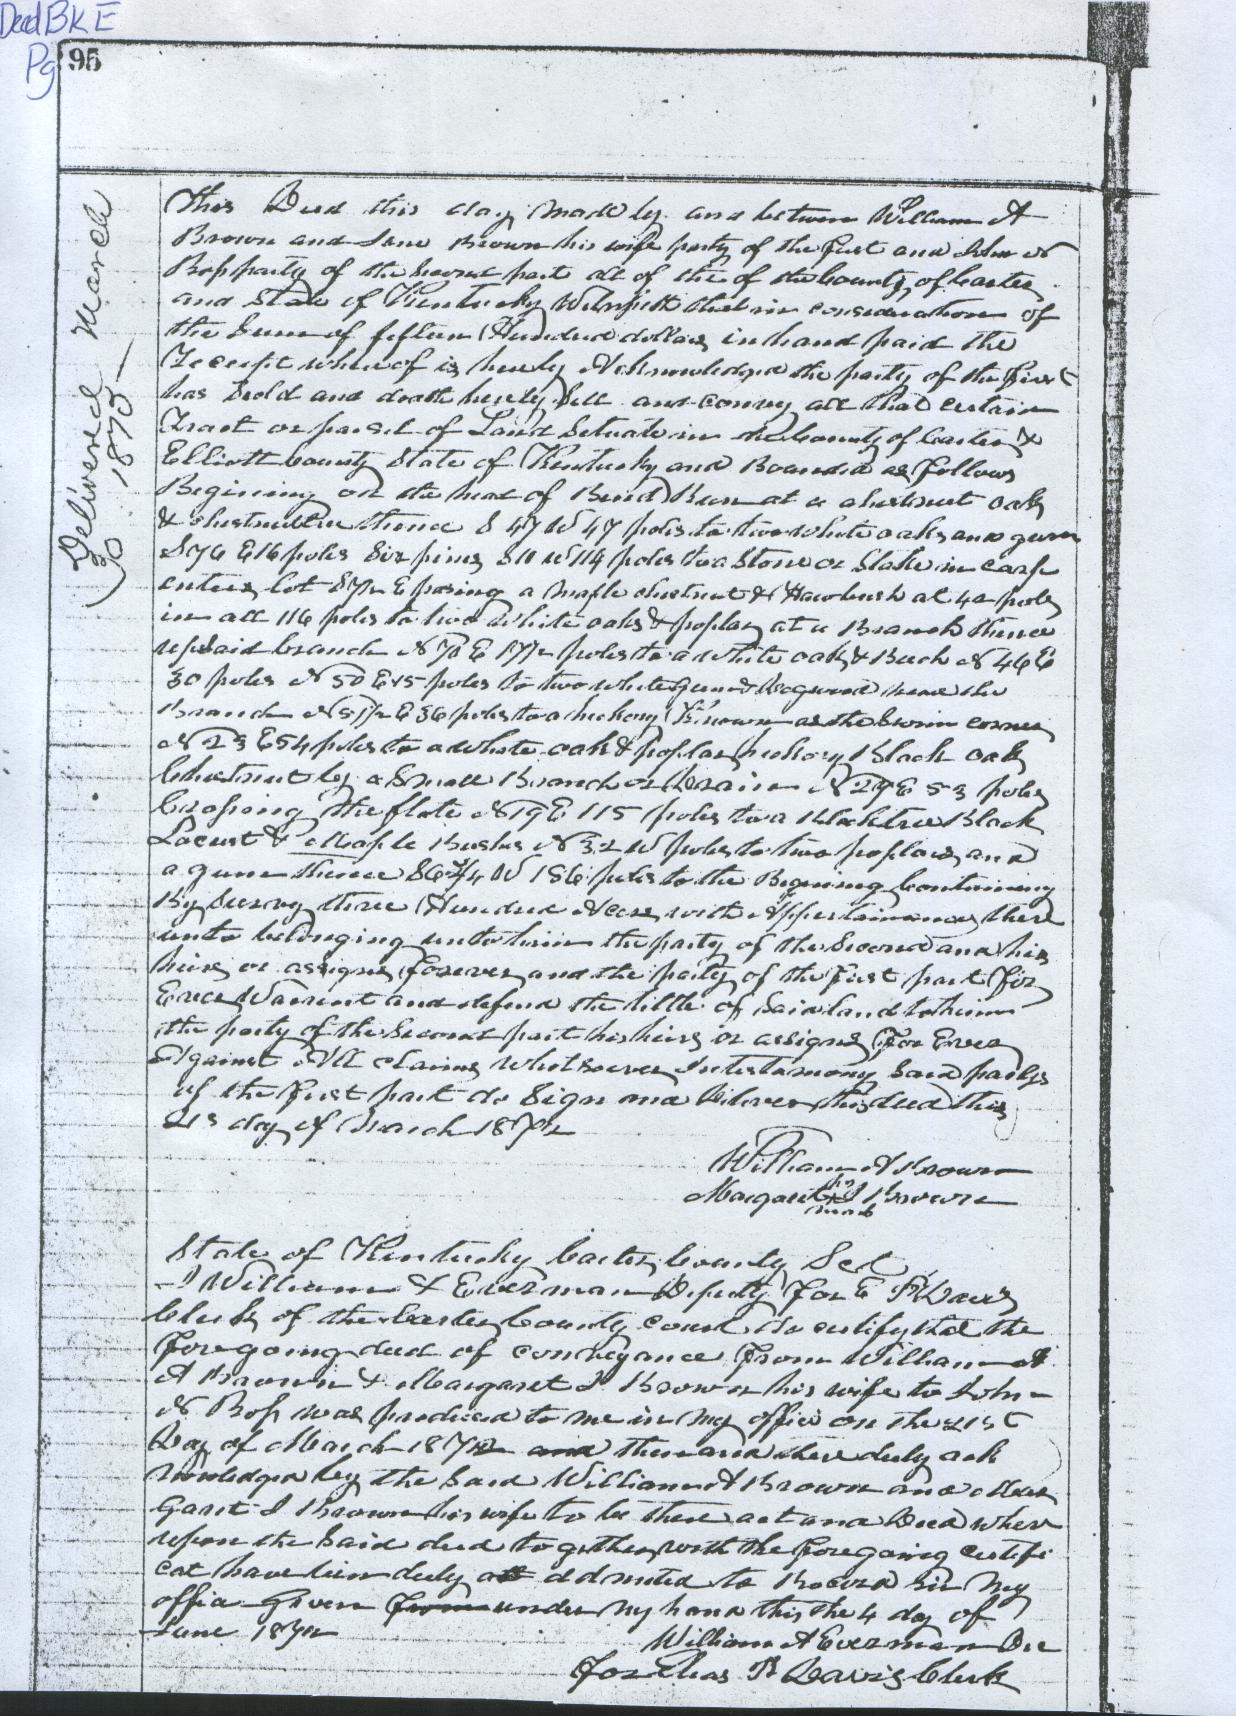 Deed BK E
Pg 95
Delivered March
30 1875
This Deed this day made by and between William A
Brown and Jane Brown his wife party of the first and John N
Ross party of the Second part all of the of the County of Carter
and State of Kentucky Witnesseth that in consideration of
the Sum of fifteen Hundred dollars in hand paid the
receipt where of is hereby Acknowledged the party of the First
has Sold and doath hereby Sell and convey all that certain
Tract or parsel of Land Setuate in the County of Carter &
Elliott County State of Kentucky and Bounded as follows
Begining on the head of Bend Run at a chestnut oak
& chestnuttree thence S 47 W 47 poles to two white oaks and gum
S 76 E 16 poles Six pines S 11 W 114 poles to a Stone or Stake in carp
enters lot S 71/2 E pasing a maple chestnut & Hawbush at 42 poles
in all 116 poles to two white oaks & poplar at a Branch thence
up said branch N 70 E 171/2 poles to a white oak & Buch N 46 E
30 poles N 50 E 15 poles to two white Gum & Dogwood near the
Branch N 51/2 E 36 poles to a hickory Known as the Swim corner
N 23 E 54 poles to a white oak & poplar hickory Black oak
Chestnut by a Small Branch or Drain N 29 E 53 poles
Crossing the flate N 19 E 115 poles to a Black Black
Locust & Maple Bushes N 32 W poles to two poplars and
a gum thence S 6 3/4 W 156 poles to the Begining Containing
By Survey three Hundred Acres with Appertainances there
unto belonging unto him the party of the Second and his
heirs or assigns forever and the party of the First part For
Ever Warrent and defend the tittle of Said land to him
the party of the Second part his heirs or assigns For Ever
Against All claims Whatsoever Intestamony Said partys
of the First part do Sign and Deliver this deed this
21s day of March 1872
William A Brown
Margaret J Brown
his
mark
State of Kentucky Carter County Sct
I William A Everman Deputy For E B Davis
Clerk of the Carter County court do certify that the
Foregoing deed of conveyance From William A
A Brown & Margaret J Brown his wife to John
N Ross was produced to me in my office on the 21st
Day of March 1872 and then and there duly ack
nowledged by the Said William A Brown and Mar
garet J Brown his wife to be there act and Deed where
upon the Said deed together with the Foregoing certifi
cat have bin duly admited to Record in My
office Given From under my hand this the 4 day of
June 1872
William A Everman De
For Elias B Davis Clerk